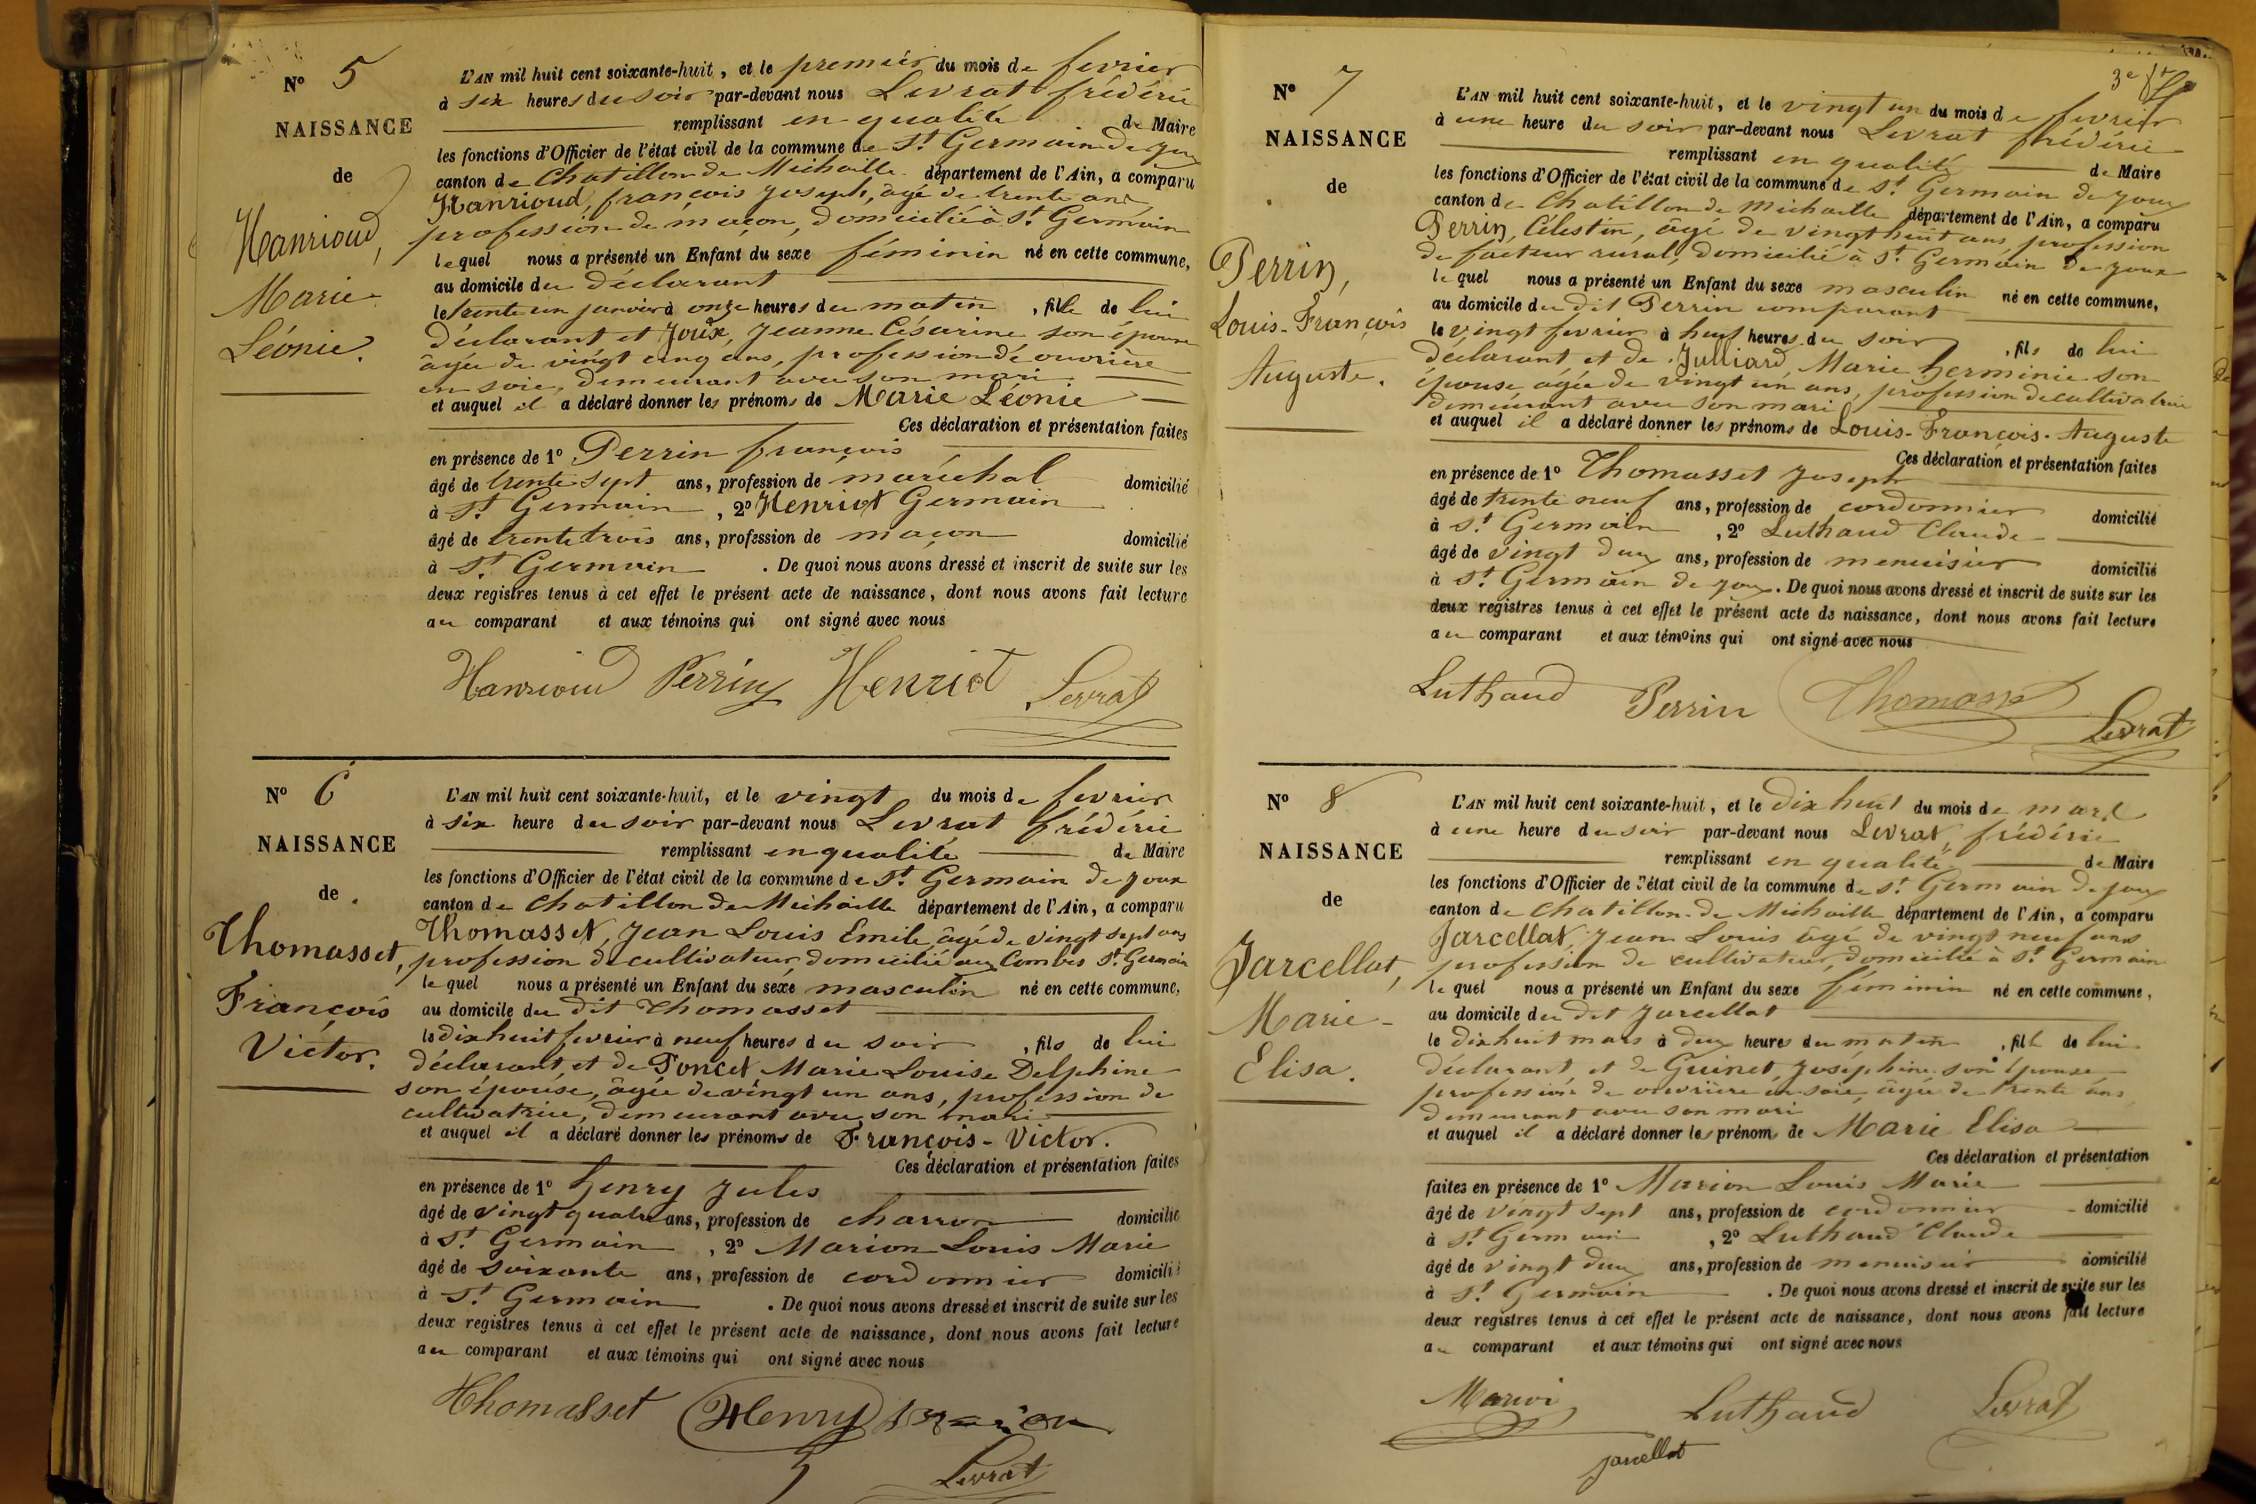 N° 5
NAISSANCE
de
Hanrioud,
Marie
Léonie.
L'AN mil huit cent soixante-huit, et le premier du mois de fevrier
à six heures du soir par-devant nous Levrat frédéric
remplissant en qualité de Maire
les fonctions d'Officier de l'état civil de la commune de St Germain de joux
canton de Chatillon de Michaille département de l'Ain, a comparu
Hanrioud, françois joseph, âgé de trente ans,
profession de maçon, domicilié à St Germain
lequel nous a présenté un Enfant du sexe féminin né en cette commune,
au domicile du déclarant
le trente un janvier à onze heures du matin, fille de lui
déclarant et Joux, jeanne Césarine son épouse
âgée de vingt cinq ans, profession de ouvrière
en soie, demeurant avec son mari
et auquel il a déclaré donner les prénoms de Marie Léonie
Ces déclaration et présentation faites
en présence de 1° Perrin françois
âgé de trente sept ans, profession de maréchal domicilié
à St Germain, 2° Henriot Germain
âgé de trente trois ans, profession de maçon domicilié
à St Germain. De quoi nous avons dressé et inscrit de suite sur les
deux registres tenus à cet effet le présent acte de naissance, dont nous avons fait lecture
au comparant et aux témoins qui ont signé avec nous
Hanrioud Perrin Henriot Levrat
N° 6
NAISSANCE
de
Thomasset,
François
Victor.
L'AN mil huit cent soixante-huit, et le vingt du mois de fevrier
à six heure du soir par-devant nous Levrat frédéric
remplissant en qualité de Maire
les fonctions d'Officier de l'état civil de la commune de St Germain de joux
canton de Chatillon de Michaille département de l'Ain, a comparu
Thomasset, Jean Louis Emile, âgé de vingt sept ans
profession de cultivateur, domicilié aux Combes St Germain
le quel nous a présenté un Enfant du sexe masculin né en cette commune,
au domicile du dit Thomasset
le dixhuit fevrier à neuf heures du soir, fils de lui
déclarant, et de Poncet Marie Louise Delphine
son épouse, âgée de vingt un ans, profession de
cultivatrice, demeurant avec son mari
et auquel il a déclaré donner les prénoms de François-Victor.
Ces déclaration et présentation faites
en présence de 1° henry jules
âgé de vingt quatre ans, profession de charron domicilié
à St Germain, 2° Marion Louis Marie
âgé de soixante ans, profession de cordonnier domicilié
à St Germain. De quoi nous avons dressé et inscrit de suite sur les
deux registres tenus à cet effet le présent acte de naissance, dont nous avons fait lecture
au comparant et aux témoins qui ont signé avec nous
Thomasset Henry Marion
Levrat
3e
N° 7
NAISSANCE
de
Perrin,
Louis-François
Auguste.
L'AN mil huit cent soixante-huit, et le vingt un du mois de fevrier
à une heure du soir par-devant nous Levrat frédéric
remplissant en qualité de Maire
les fonctions d'Officier de l'état civil de la commune de St Germain de joux
canton de Chatillon de Michaille département de l'Ain, a comparu
Perrin, Célestin, âgé de vingt huit ans, profession
de facteur rural, domicilié à St Germain de joux
le quel nous a présenté un Enfant du sexe masculin né en cette commune,
au domicile du dit Perrin comparant
le vingt fevrier à heures du soir, fils de lui
déclarant et de Julliard, Marie herminie son
épouse âgée de vingt un ans, profession de cultivatrice
demeurant avec son mari
et auquel il a déclaré donner les prénoms de Louis-François-Auguste
Ces déclaration et présentation faites
en présence de 1° Thomasset joseph
âgé de trente neuf ans, profession de cordonnier domicilié
à St Germain, 2° Luthaud Claude
âgé de vingt deux ans, profession de menuisier domicilié
à St Germain de joux. De quoi nous avons dressé et inscrit de suite sur les
deux registres tenus à cet effet le présent acte de naissance, dont nous avons fait lecture
au comparant et aux témoins qui ont signé avec nous
Luthaud Perrin Thomasset
Levrat
N° 8
NAISSANCE
de
Jarcellat,
Marie-
Elisa.
L'AN mil huit cent soixante-huit, et le dix huit du mois de mars
à une heure du soir par-devant nous Levrat, frédéric
remplissant en qualité de Maire
les fonctions d'Officier de l'état civil de la commune de St Germain de joux
canton de Chatillon de Michaille département de l'Ain, a comparu
Jarcellat, Jean Louis âgé de vingt neuf ans
profession de cultivateur, domicilié à St Germain
le quel nous a présenté un Enfant du sexe féminin né en cette commune,
au domicile du dit jarcellat
le dixhuit mars à deux heures du matin, fille de lui
déclarant, et de Guinet, joséphine son épouse
profession de ouvrière en soie, âgée de trente ans
demeurant avec son mari
et auquel il a déclaré donner les prénoms de Marie Elisa
Ces déclaration et présentation
faites en présence de 1° Marion Louis Marie
âgé de vingt sept ans, profession de cordonnier domicilié
à St Germain, 2° Luthaud Claude
âgé de vingt deux ans, profession de menuisier domicilié
à St Germain. De quoi nous avons dressé et inscrit de suite sur les
deux registres tenus à cet effet le présent acte de naissance, dont nous avons fait lecture
au comparant et aux témoins qui ont signé avec nous
Luthaud Levrat
jarcellat